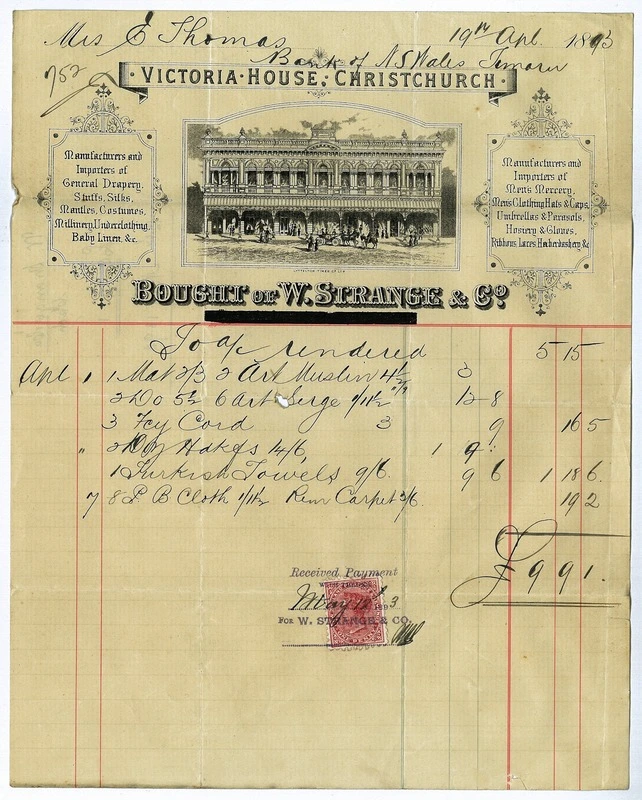 Mrs E Thomas 19th Apl. 1893
Bank of NSWales Timaru
752
VICTORIA · HOUSE, CHRISTCHURCH
Manufacturers and
Importers of
General Drapery,
Stuffs, Silks,
Mantles, Costumes,
Millinery, Underclothing,
Baby Linen, &c.
Manufacturers and
Importers of
Men's Mercery,
Men's Clothing Hats & Caps,
Umbrellas & Parasols,
Hosiery & Gloves,
Ribbons, Laces, Haberdashery, &c
BOUGHT OF W. STRANGE & Co.
To a/c rendered 5 15
Apl 1 1 Mat 2/3 2 Art Muslin 4½ 3
2 Do 5½ 6 Art Serge 1/11½ 12 8
3 Fcy Cord 3 9 16 5
" 2 Doz Hdkfs 14/6 1 9
1 Turkish Towels 9/6 9 6 1 18 6
7 8 P B Cloth 1/1½ Rem Carpet 3/6 19 2
£9 9 1
Received Payment
May 1893
FOR W. STRANGE & CO.